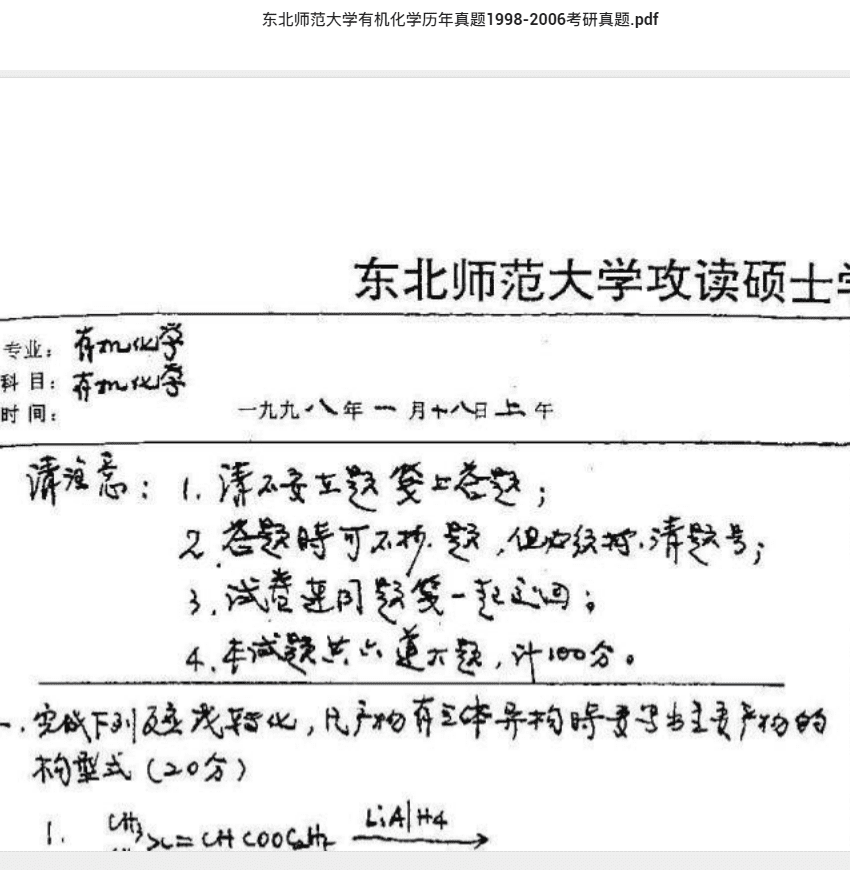 东北师范大学有机化学历年真题1998-2006考研真题.pdf
东北师范大学攻读硕士学
专业：有机化学
科目：有机化学
时间：一九九八年一月十八日上午
请注意：1. 请不要在题签上答题；
2. 答题时可不抄题，但必须抄清题号；
3. 试卷连同题签一起交回；
4. 本试题共六道大题，计100分。
一.完成下列反应或转化，凡产物有立体异构时要写出主要产物的
构型式（20分）
1. CH3 >C=CHCOOC2H5 LiAlH4